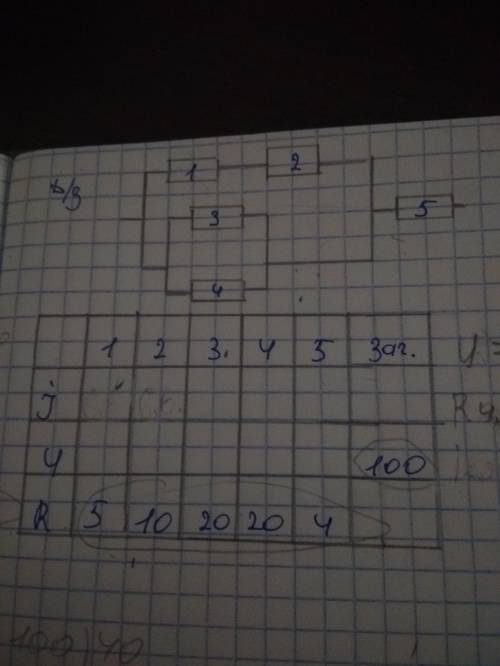 1 2
д/з
3 5
4
1 2 3. 4 5 Заг.
I
U 100
R 5 10 20 20 4
100